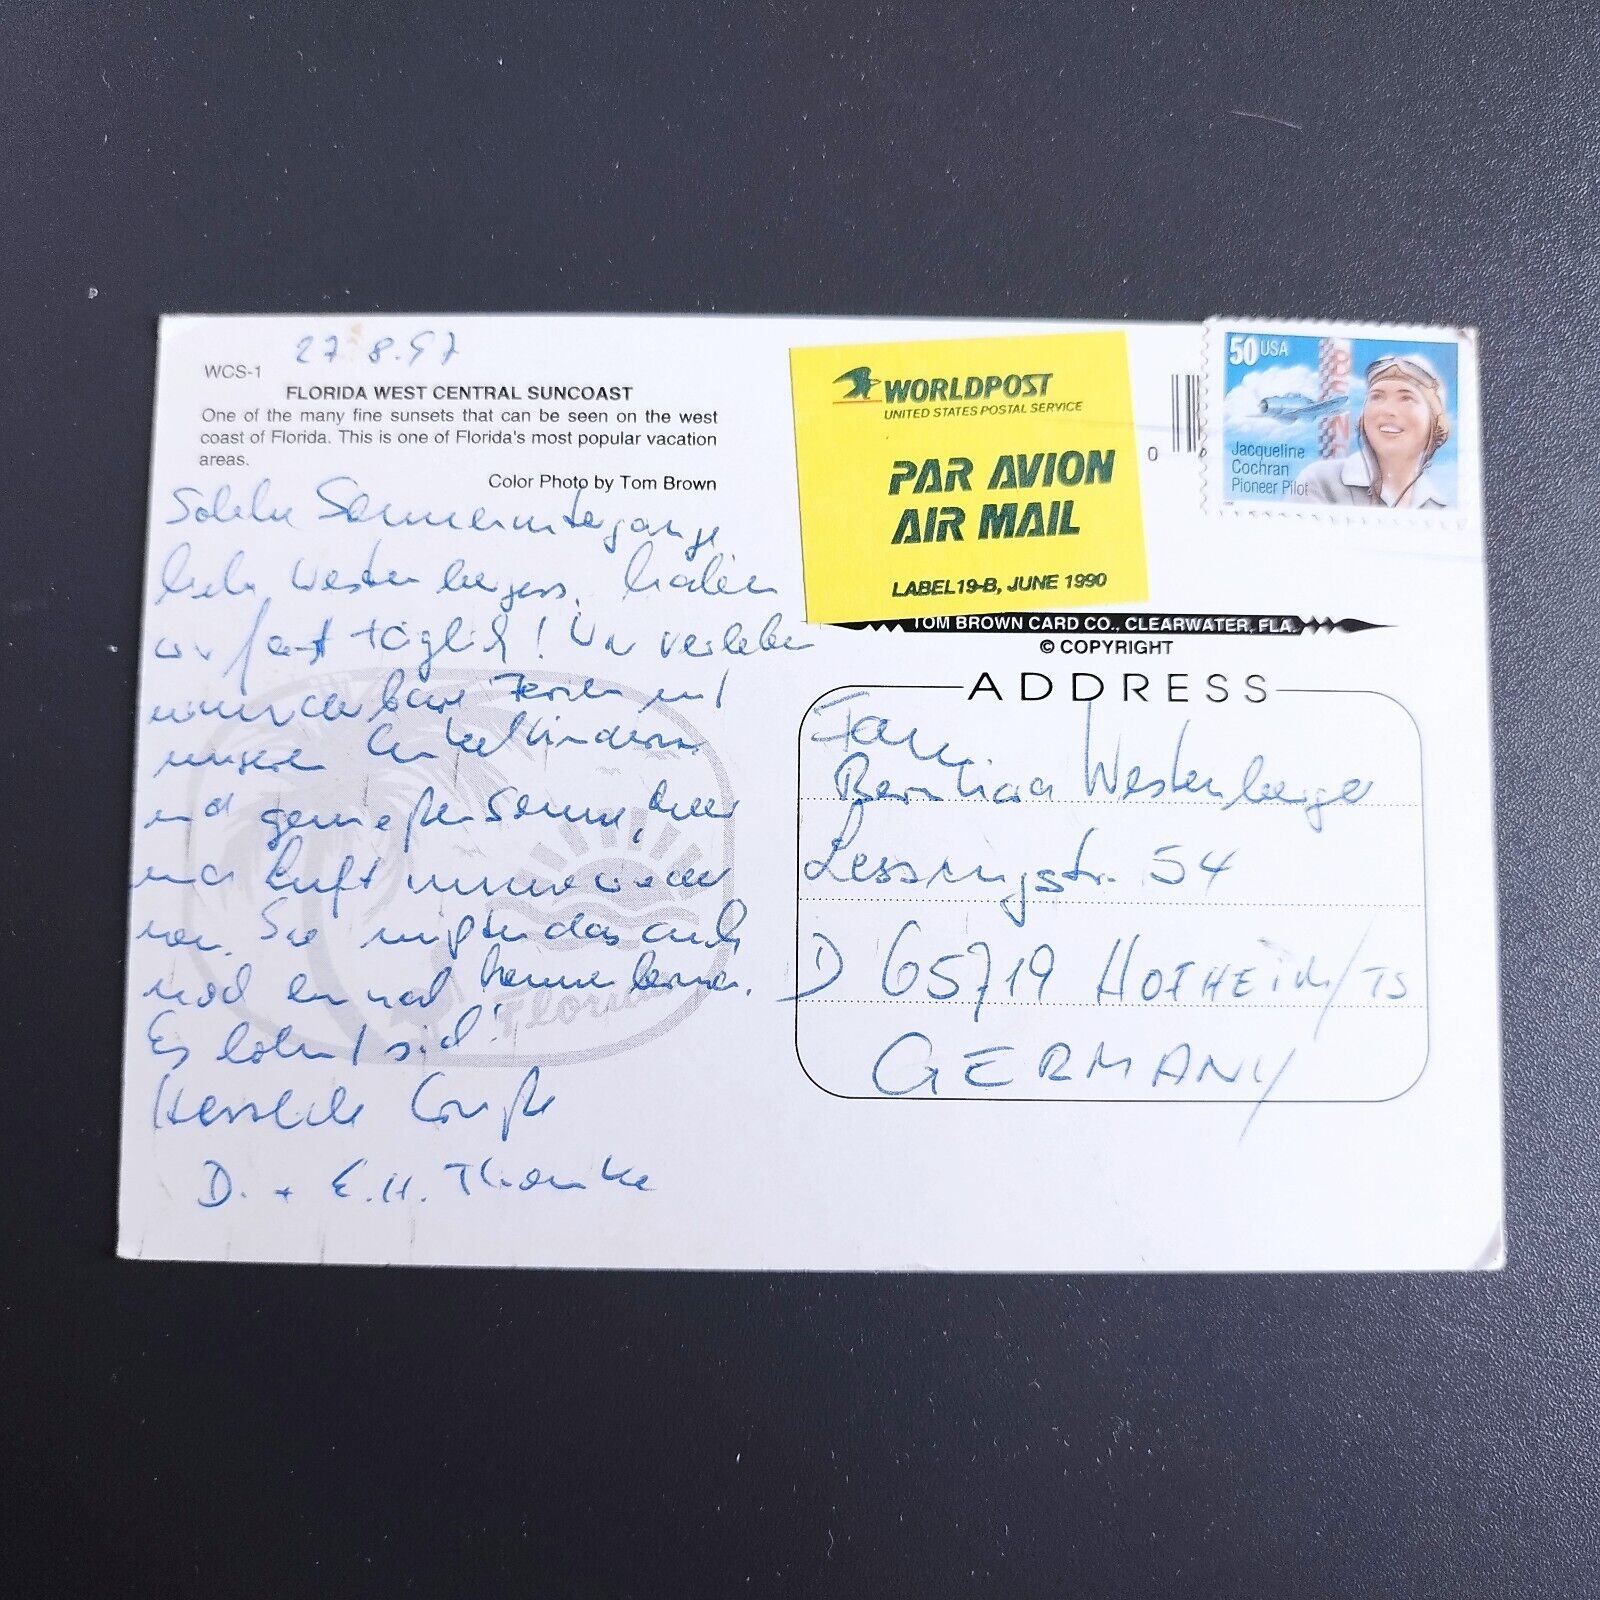 27.8.97
WCS-1
FLORIDA WEST CENTRAL SUNCOAST
One of the many fine sunsets that can be seen on the west
coast of Florida. This is one of Florida's most popular vacation
areas.
Color Photo by Tom Brown
Solche Sonnenuntergänge
liebe Westenbergers, haben
wir fast täglich! Wir verleben
wunderbare Ferien mit
unseren Enkelkindern
und genießen Sonne, Meer
und Luft immer wieder
neu. Sie müßten das auch
mal kennenlernen.
Es lohnt sich!
Herzliche Grüße
D. + E.H.
Florida
WORLDPOST
UNITED STATES POSTAL SERVICE
PAR AVION
AIR MAIL
LABEL 19-B, JUNE 1990
0
50 USA
Jacqueline
Cochran
Pioneer Pilot
TOM BROWN CARD CO., CLEARWATER, FLA.
© COPYRIGHT
ADDRESS
Fam.
Westenberger
Lessingstr. 54
D 65719 HOFHEIM/TS
GERMANY